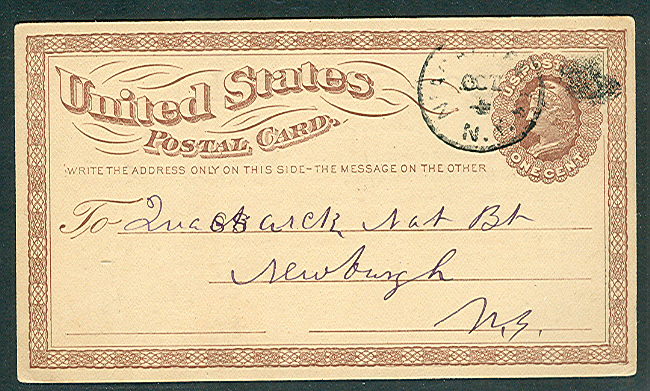 United States
POSTAL CARD.
U.S. POSTAGE
ONE CENT
OCT
N.Y.
WRITE THE ADDRESS ONLY ON THIS SIDE – THE MESSAGE ON THE OTHER
To Nat Bk
Newburgh
N.Y.